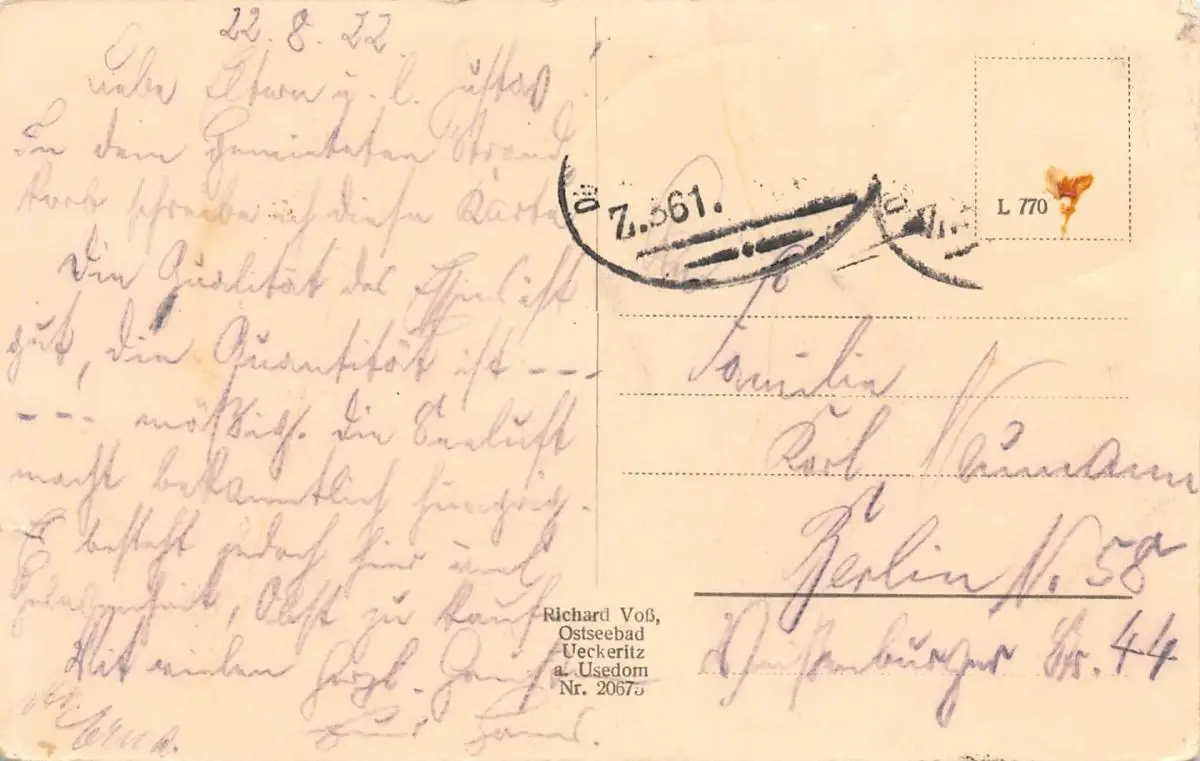 22.8.22
Liebe Eltern u. l. Gustav
In dem gemieteten Strand
korb schreibe ich diese Karte
Die Qualität des Essens ist
gut, die Quantität ist ---
--- mässig. Die Seeluft
macht bekanntlich hungrig.
Es besteht jedoch hier viel
Gelegenheit, Obst zu kaufen
Mit vielen herzl. Grüssen
Erna. Euer Hans.
Z.361.
Z.
L 770
Familie
Karl Naumann
Berlin N. 58
Weißenburger Str. 44
Richard Voß,
Ostseebad
Ueckeritz
a. Usedom
Nr. 20675